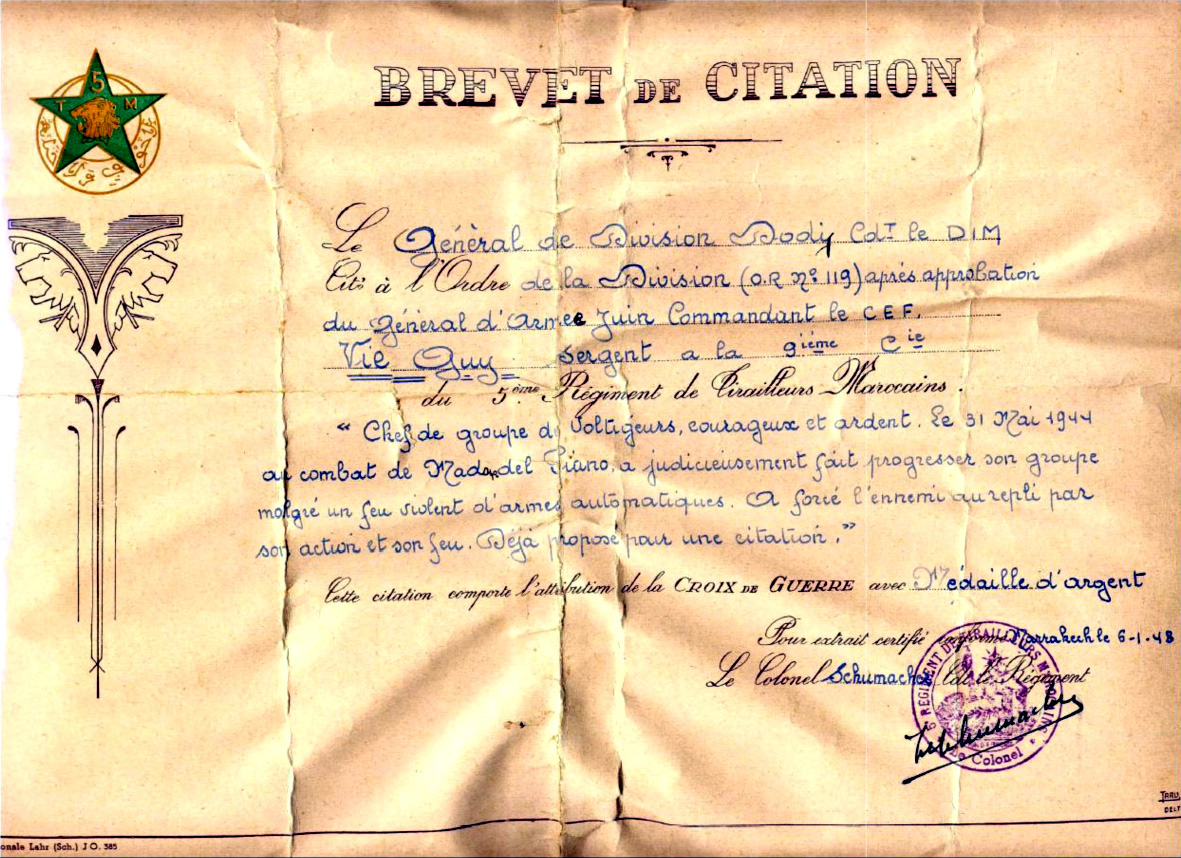 5
T M
BREVET DE CITATION
Le Général de Division Dody Cdt le D I M
Cite à l'Ordre de la Division (O.R Nº 119) aprés approbation
du Général d'Armée Juin Commandant le C E F.
Vie Guy sergent a la 9ième Cie
du 5ème Régiment de Tirailleurs Marocains.
" Chef de groupe de Voltigeurs, courageux et ardent. Le 31 Mai 1944
au combat de del Piano, a judicieusement fait progresser son groupe
malgré un feu violent d'armes automatiques. A forcé l'ennemi au repli par
son action et son feu. Déjà proposé pour une citation."
Cette citation comporte l'attribution de la CROIX DE GUERRE avec Médaille d'argent
Pour extrait certifié conforme Marrakech le 6-1-48
Le Colonel Schumacher Cdt le Régiment
RÉGIMENT DE TIRAILLEURS MAROCAINS
Le Colonel
onale Lahr (Sch.) J O. 385